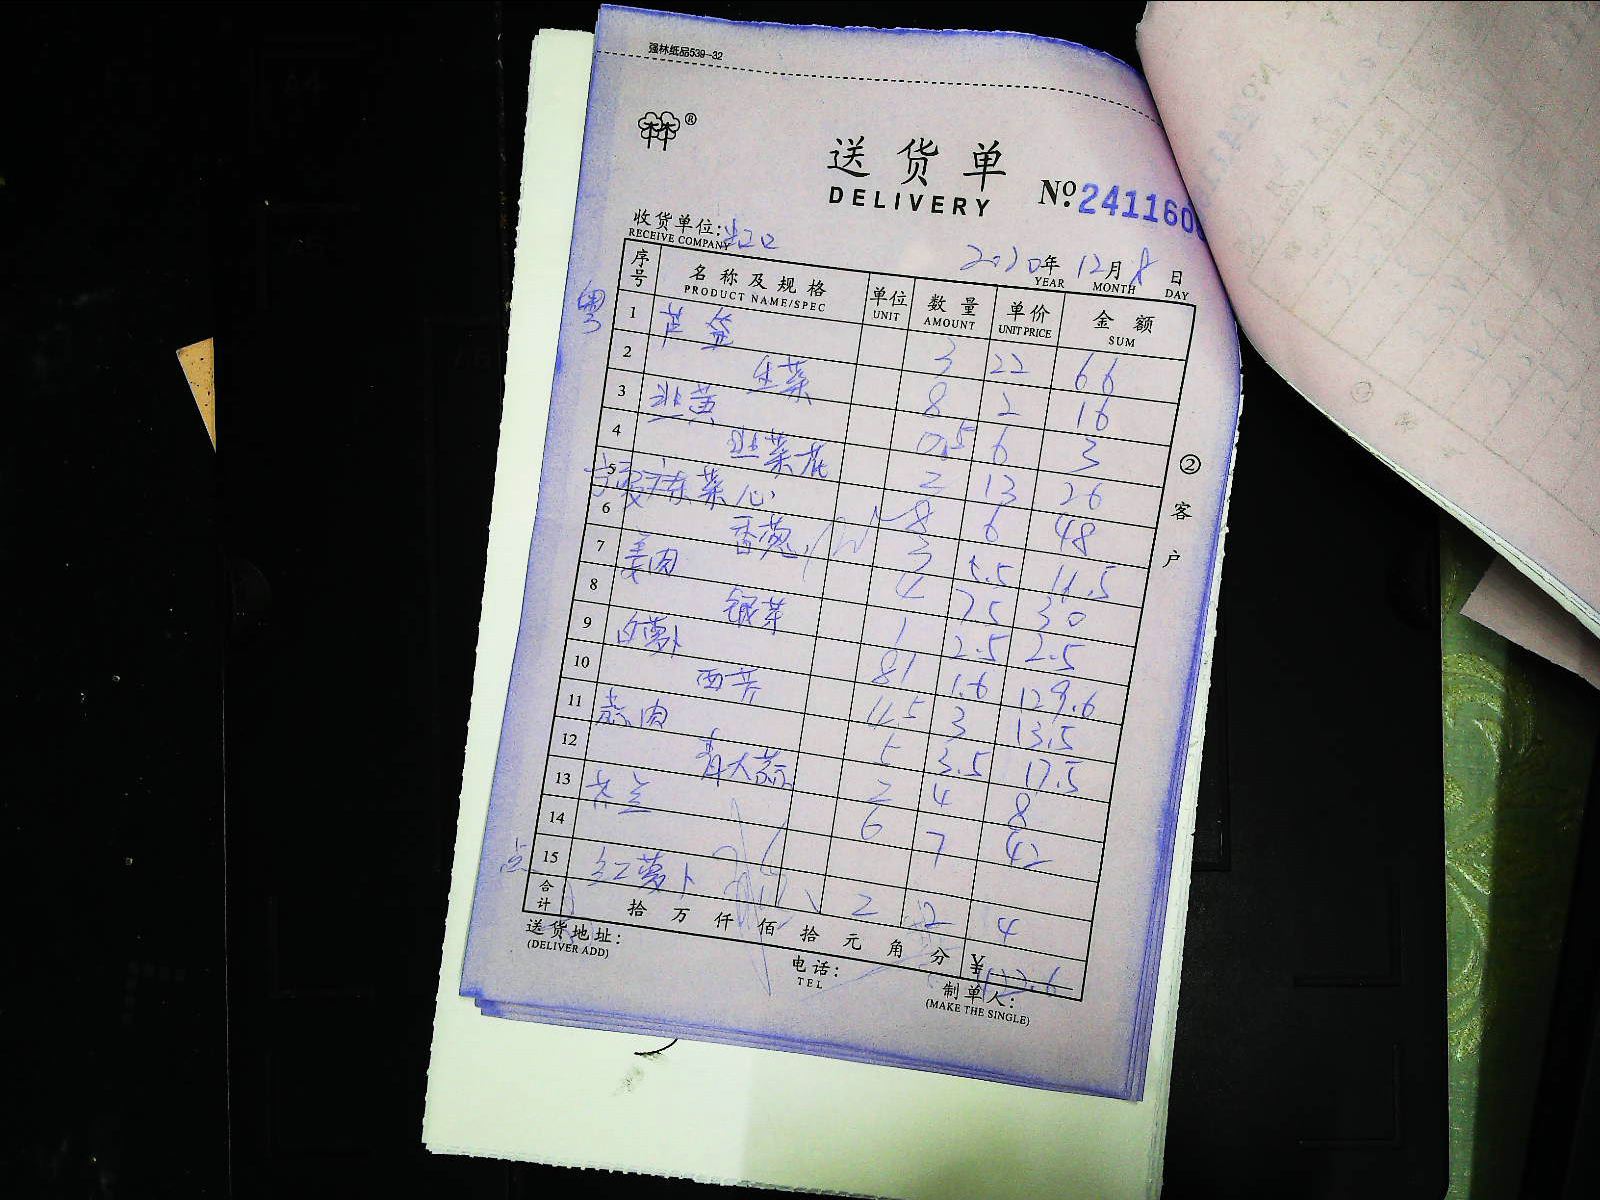 强林纸品539-32
林®
送货单
DELIVERY
№ 241160
收货单位:
RECEIVE COMPANY
2020年 12月 8日
YEAR MONTH DAY
序号 名称及规格 单位 数量 单价 金额
PRODUCT NAME/SPEC UNIT AMOUNT UNIT PRICE SUM
粤
1 芦笋 3 22 66
2 生菜 8 2 16
3 韭黄 0.5 6 3
4 韭菜花 2 13 26
5 广东菜心 8 6 48
6 香葱 3 5.5
7 姜肉 4 7.5 30
8 银芽 1 2.5 2.5
9 白萝卜 81 1.6 129.6
10 西芹 4.5 3 13.5
11 蒜肉 5 3.5 17.5
12 青大蒜 2 4 8
13 芥兰 6 7 42
14
点
15 红萝卜 2 2 4
合计 拾 万 仟 佰 拾 元 角 分 ¥
送货地址:
(DELIVER ADD)
电话:
TEL
制单人:
(MAKE THE SINGLE)
② 客户